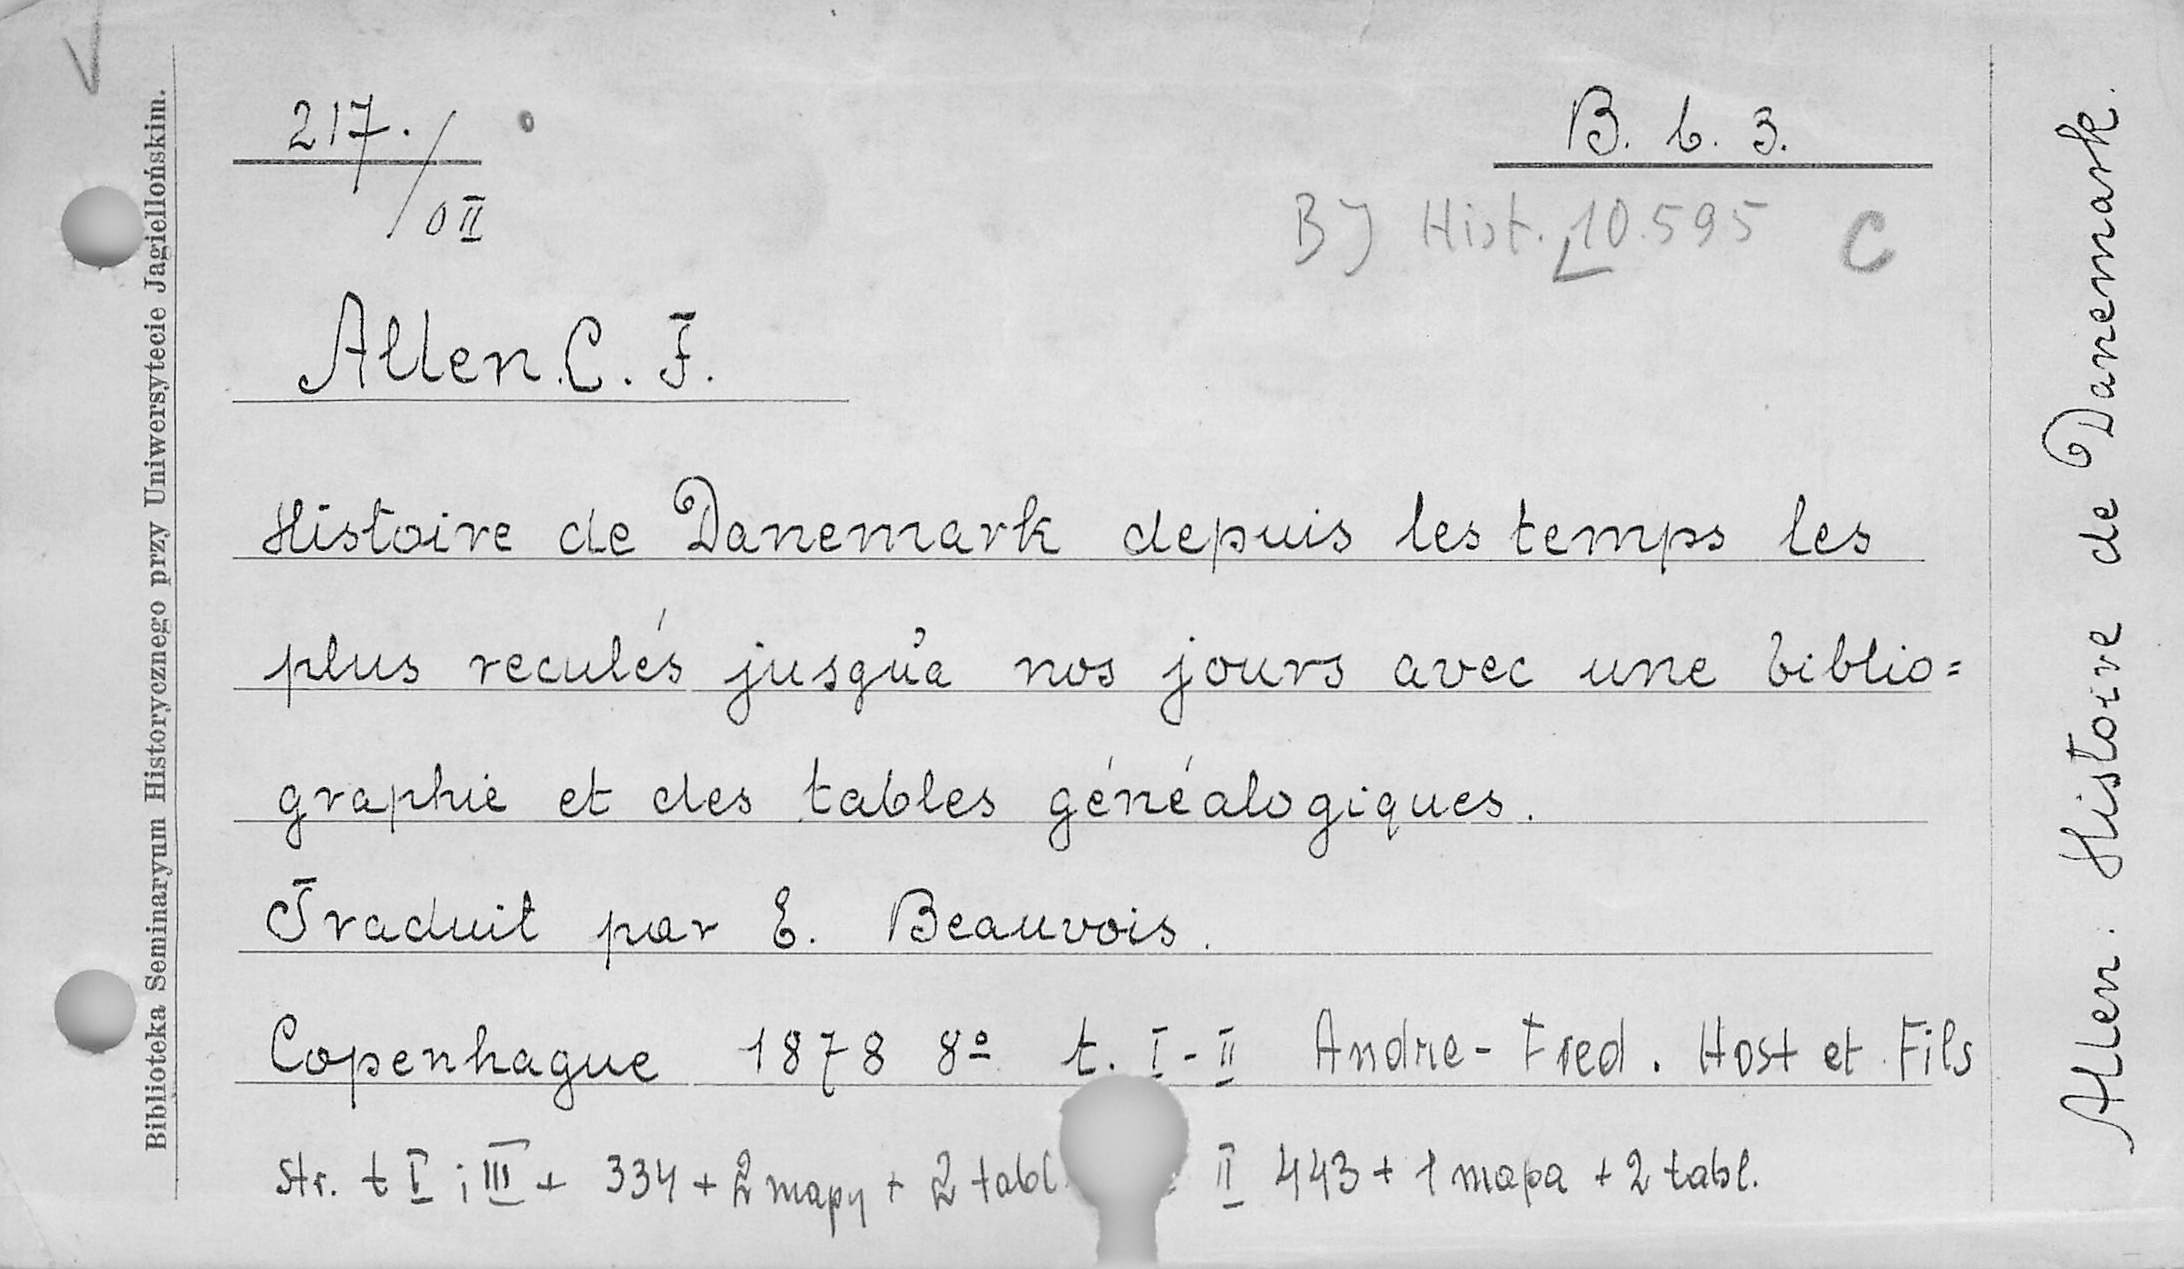 217./0II
B. b. 3.
BJ Hist. 10.595 C
Allen. C. F.
Histoire de Danemark depuis les temps les
plus reculés jusqu'a nos jours avec une biblio=
graphie et des tables généalogiques.
Traduit par E. Beauvois.
Copenhague 1878 8º t. I-II Andre-Fred. Host et Fils
Str. t I ; III + 334 + 2 mapy + 2 tabl. II 443 + 1 mapa + 2 tabl.
Biblioteka Seminaryum Historycznego przy Uniwersytecie Jagiellońskim.
Allen: Histoire de Danemark.